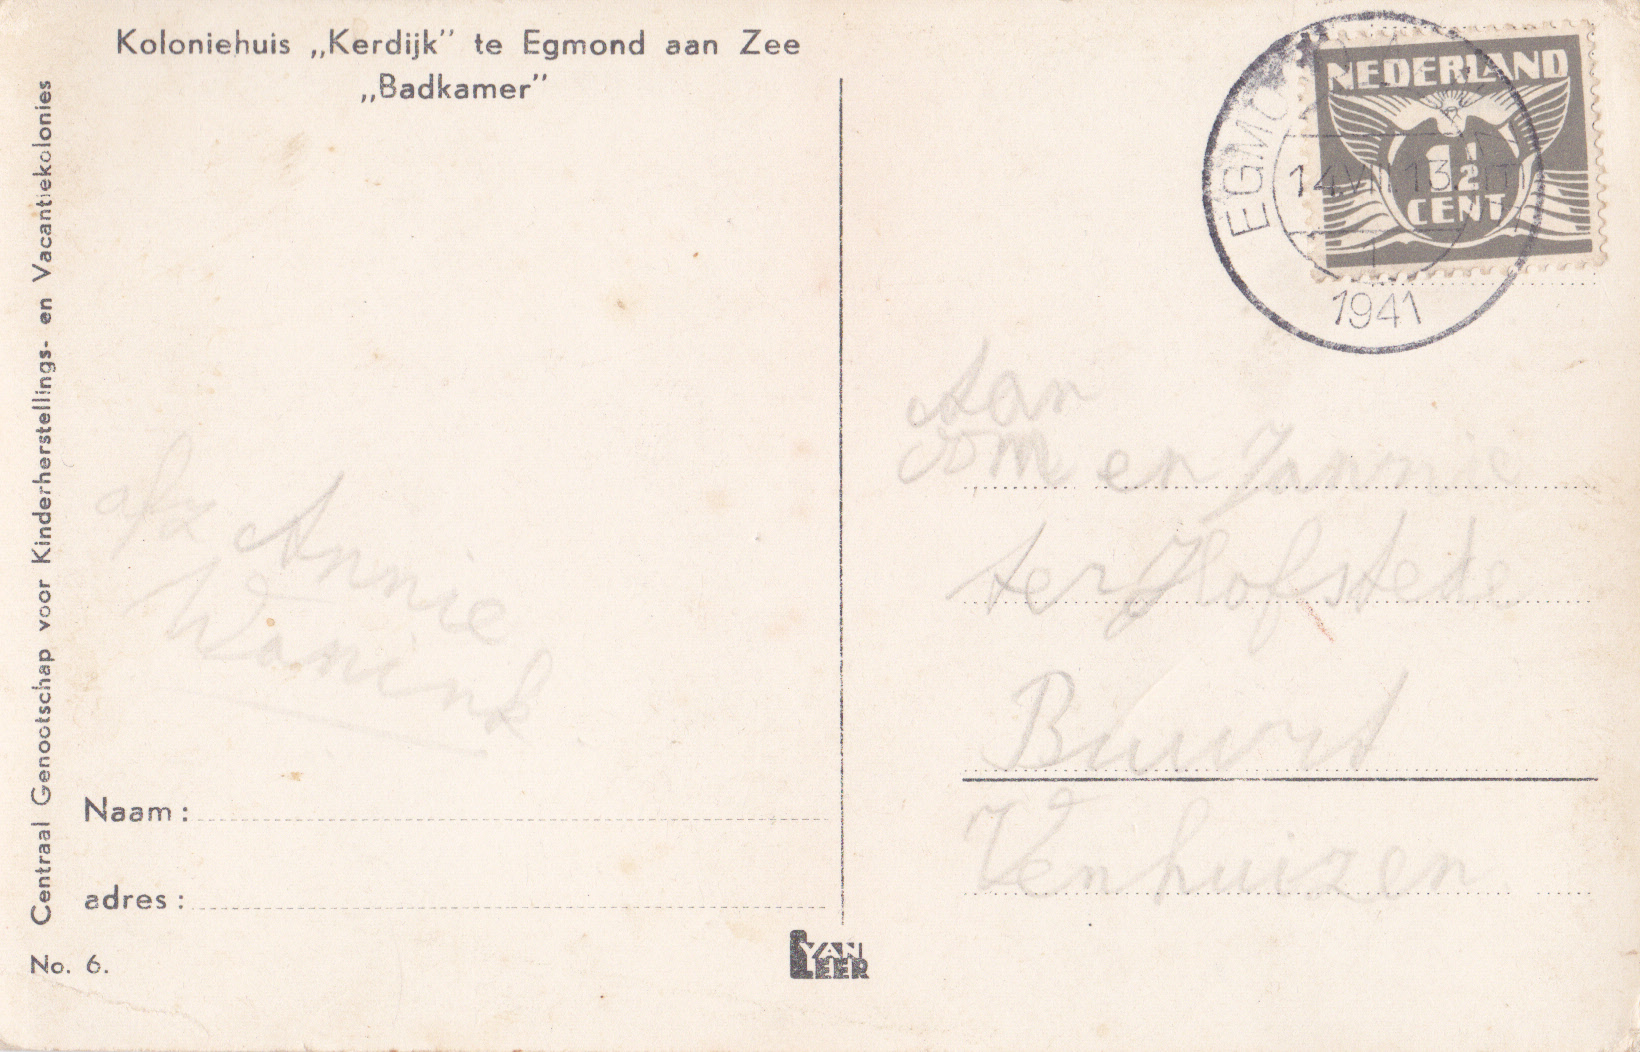 Koloniehuis „Kerdijk” te Egmond aan Zee
„Badkamer”
Centraal Genootschap voor Kinderherstellings- en Vacantiekolonies
NEDERLAND
1½
CENT
EGMO
14.VI 13
1941
Aan
Oom en Jannie
ter Hofstede
Buurt
Venhuizen
afz Annie
Wanink
Naam :
adres :
No. 6.
VAN
LEER